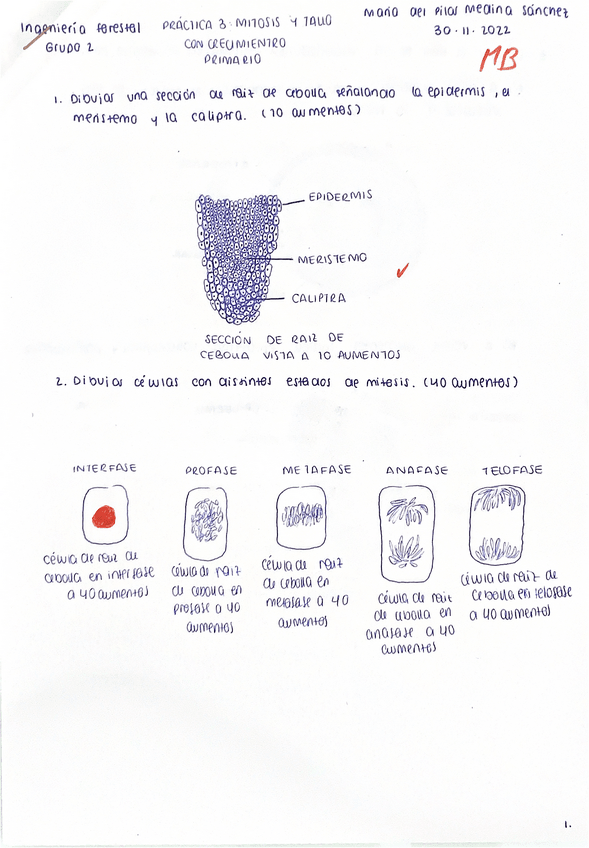 Ingeniería forestal
Grupo 2
PRÁCTICA 3: MITOSIS Y TALLO
CON CRECIMIENTRO
PRIMARIO
María del Pilar Medina Sánchez
30·11·2022
MB
1. Dibujas una sección de raiz de cebolla señalando la epidermis, el
meristemo y la caliptra. (10 aumentos)
EPIDERMIS
MERISTEMO
CALIPTRA
SECCIÓN DE RAIZ DE
CEBOLLA VISTA A 10 AUMENTOS
2. Dibujas células con distintos estados de mitosis. (40 aumentos)
INTERFASE
célula de raiz de
cebolla en interfase
a 40 aumentos
PROFASE
célula de raiz
de cebolla en
profase a 40
aumentos
METAFASE
célula de raiz
de cebolla en
metafase a 40
aumentos
ANAFASE
célula de raiz
de cebolla en
anafase a 40
aumentos
TELOFASE
célula de raiz de
cebolla en telofase
a 40 aumentos
1.